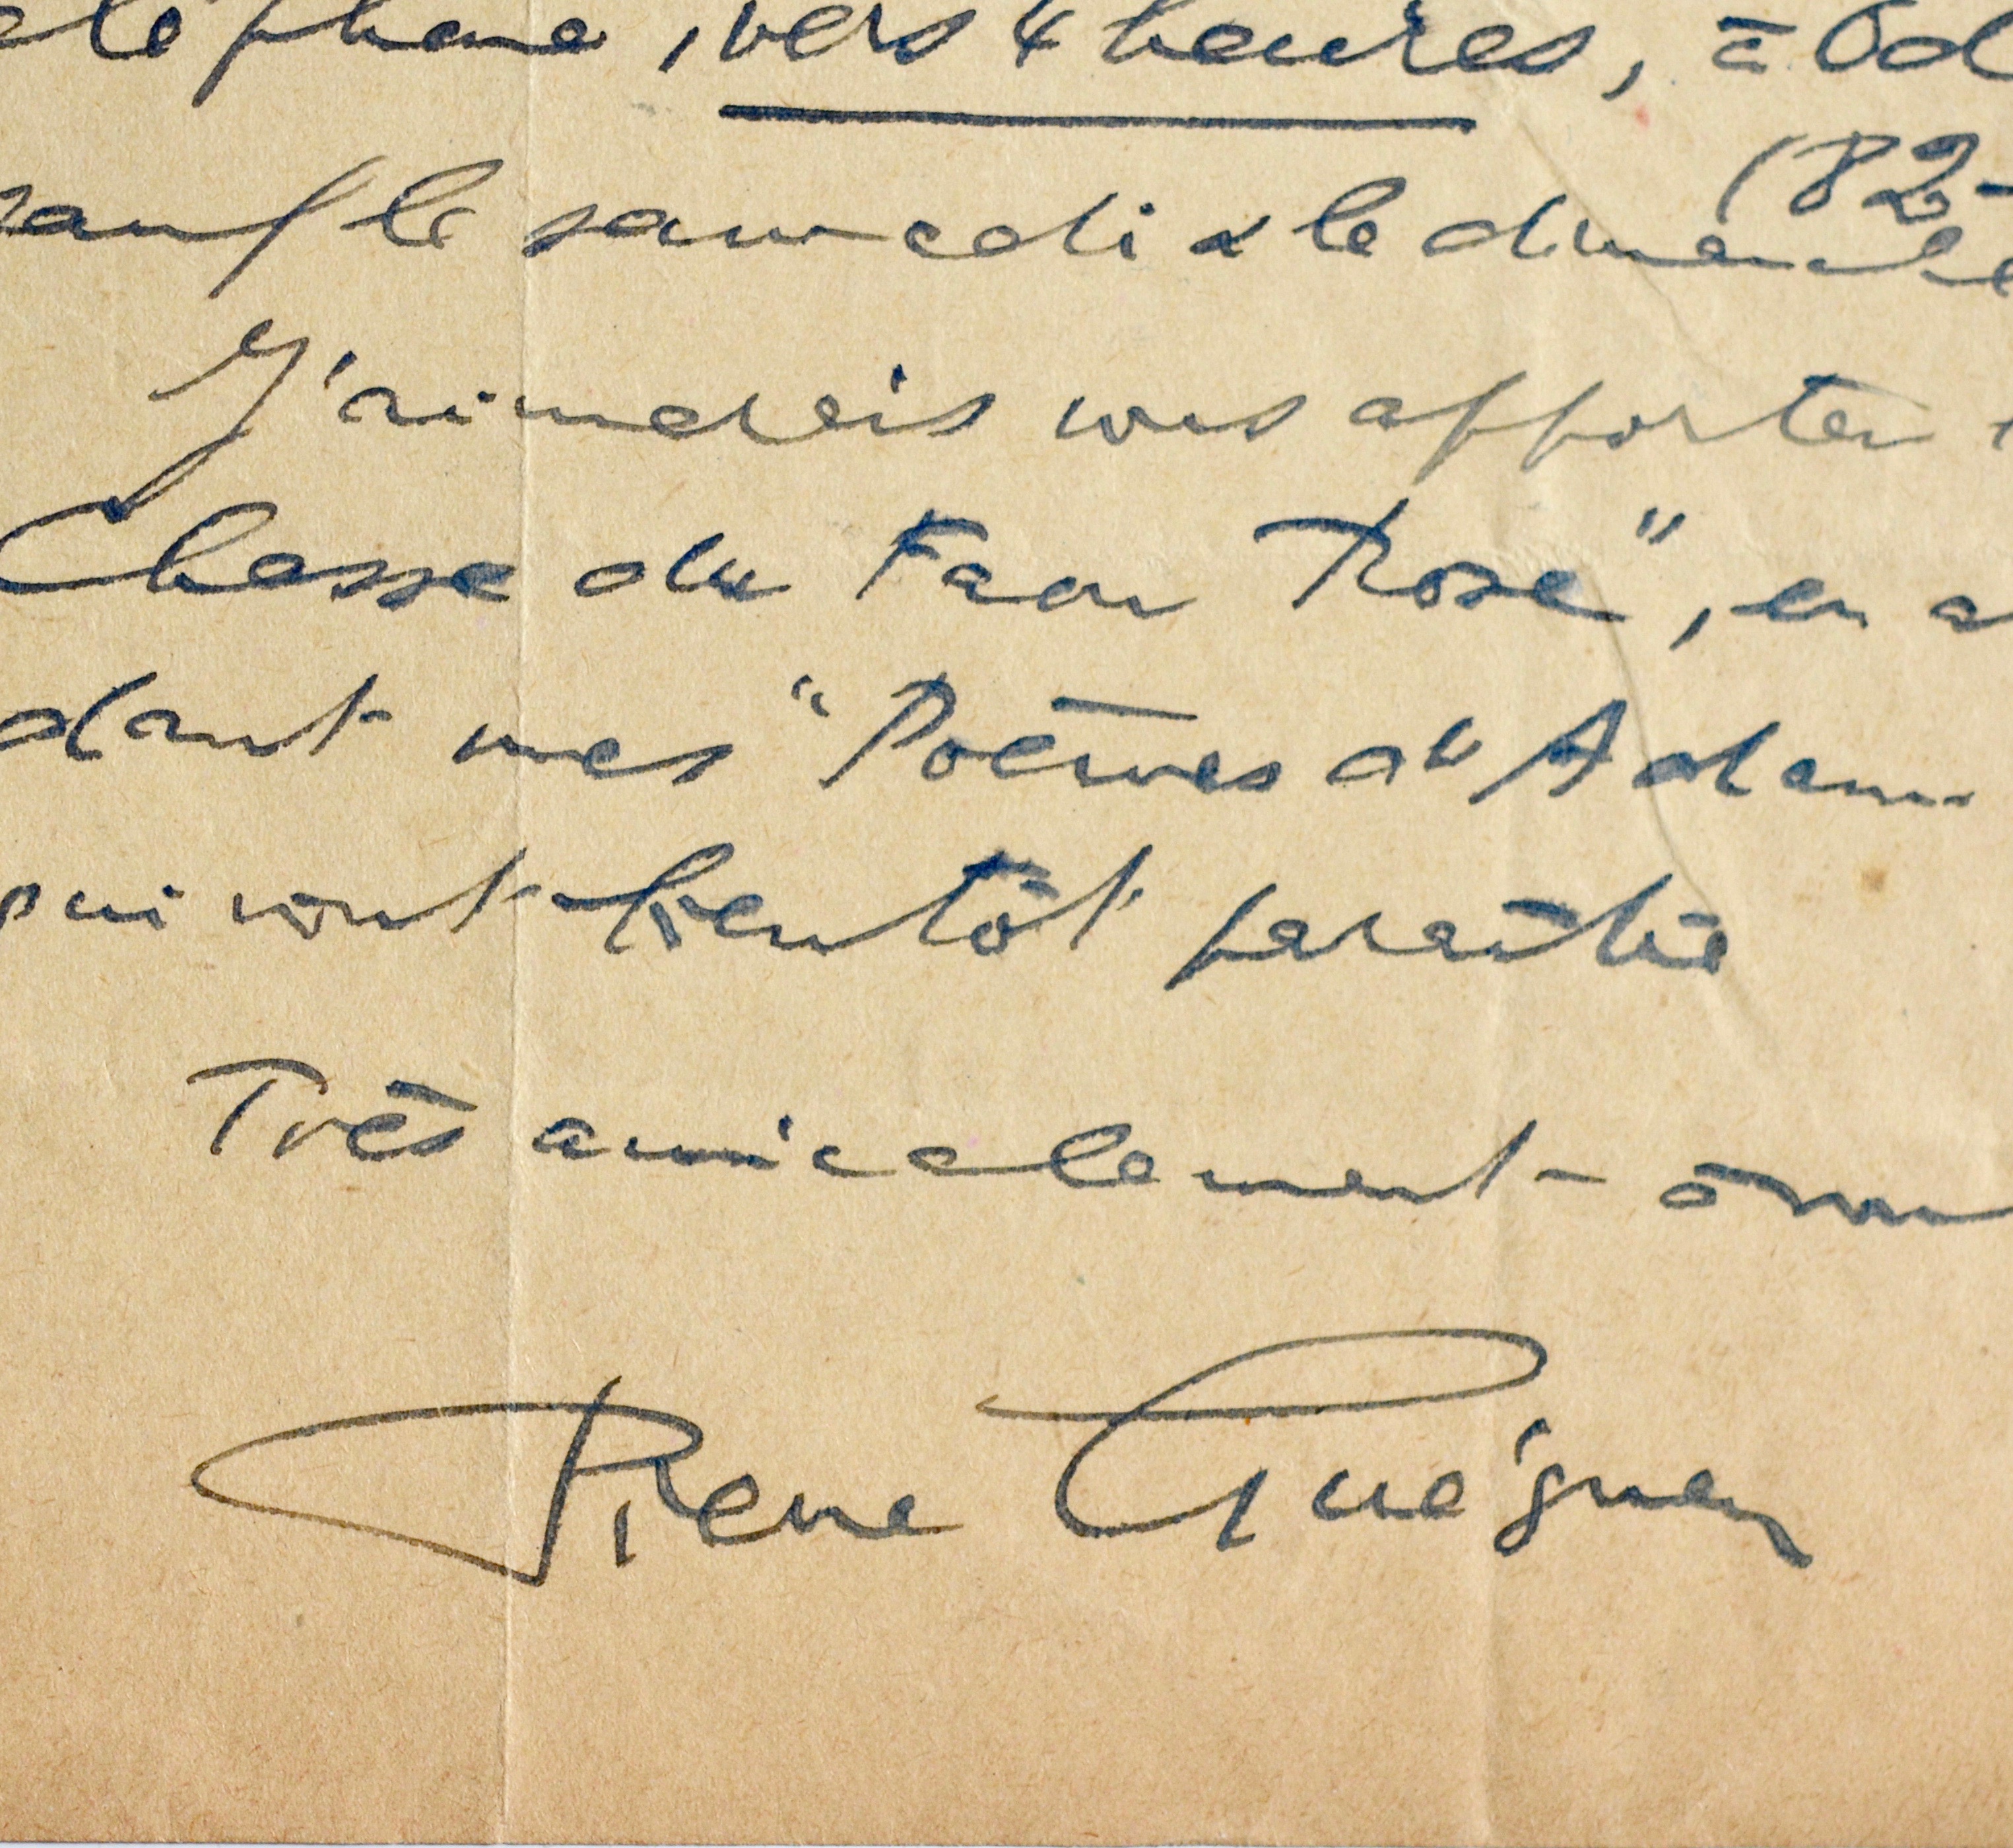 éléphone, vers 4 heures, à Od
(82-
sauf le samedi & le dimanche
J'aimerais vous apporter
Chasse du Faon Rose", en a
dant mes "Poèmes d'Adam
qui vont bientôt paraître
Très amicalement à vou
Pierre Guéguen